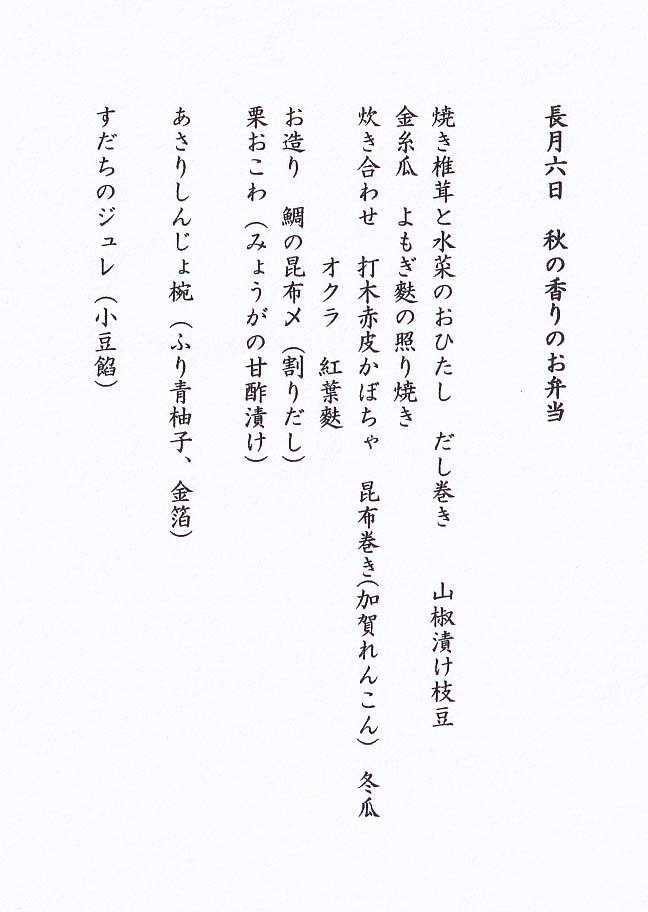 長月六日　秋の香りのお弁当
焼き椎茸と水菜のおひたし　だし巻き　　山椒漬け枝豆
金糸瓜　よもぎ麩の照り焼き
炊き合わせ　打木赤皮かぼちゃ　昆布巻き(加賀れんこん)　冬瓜
オクラ　紅葉麩
お造り　鯛の昆布〆（割りだし）
栗おこわ（みょうがの甘酢漬け）
あさりしんじょ椀（ふり青柚子、金箔）
すだちのジュレ（小豆餡）